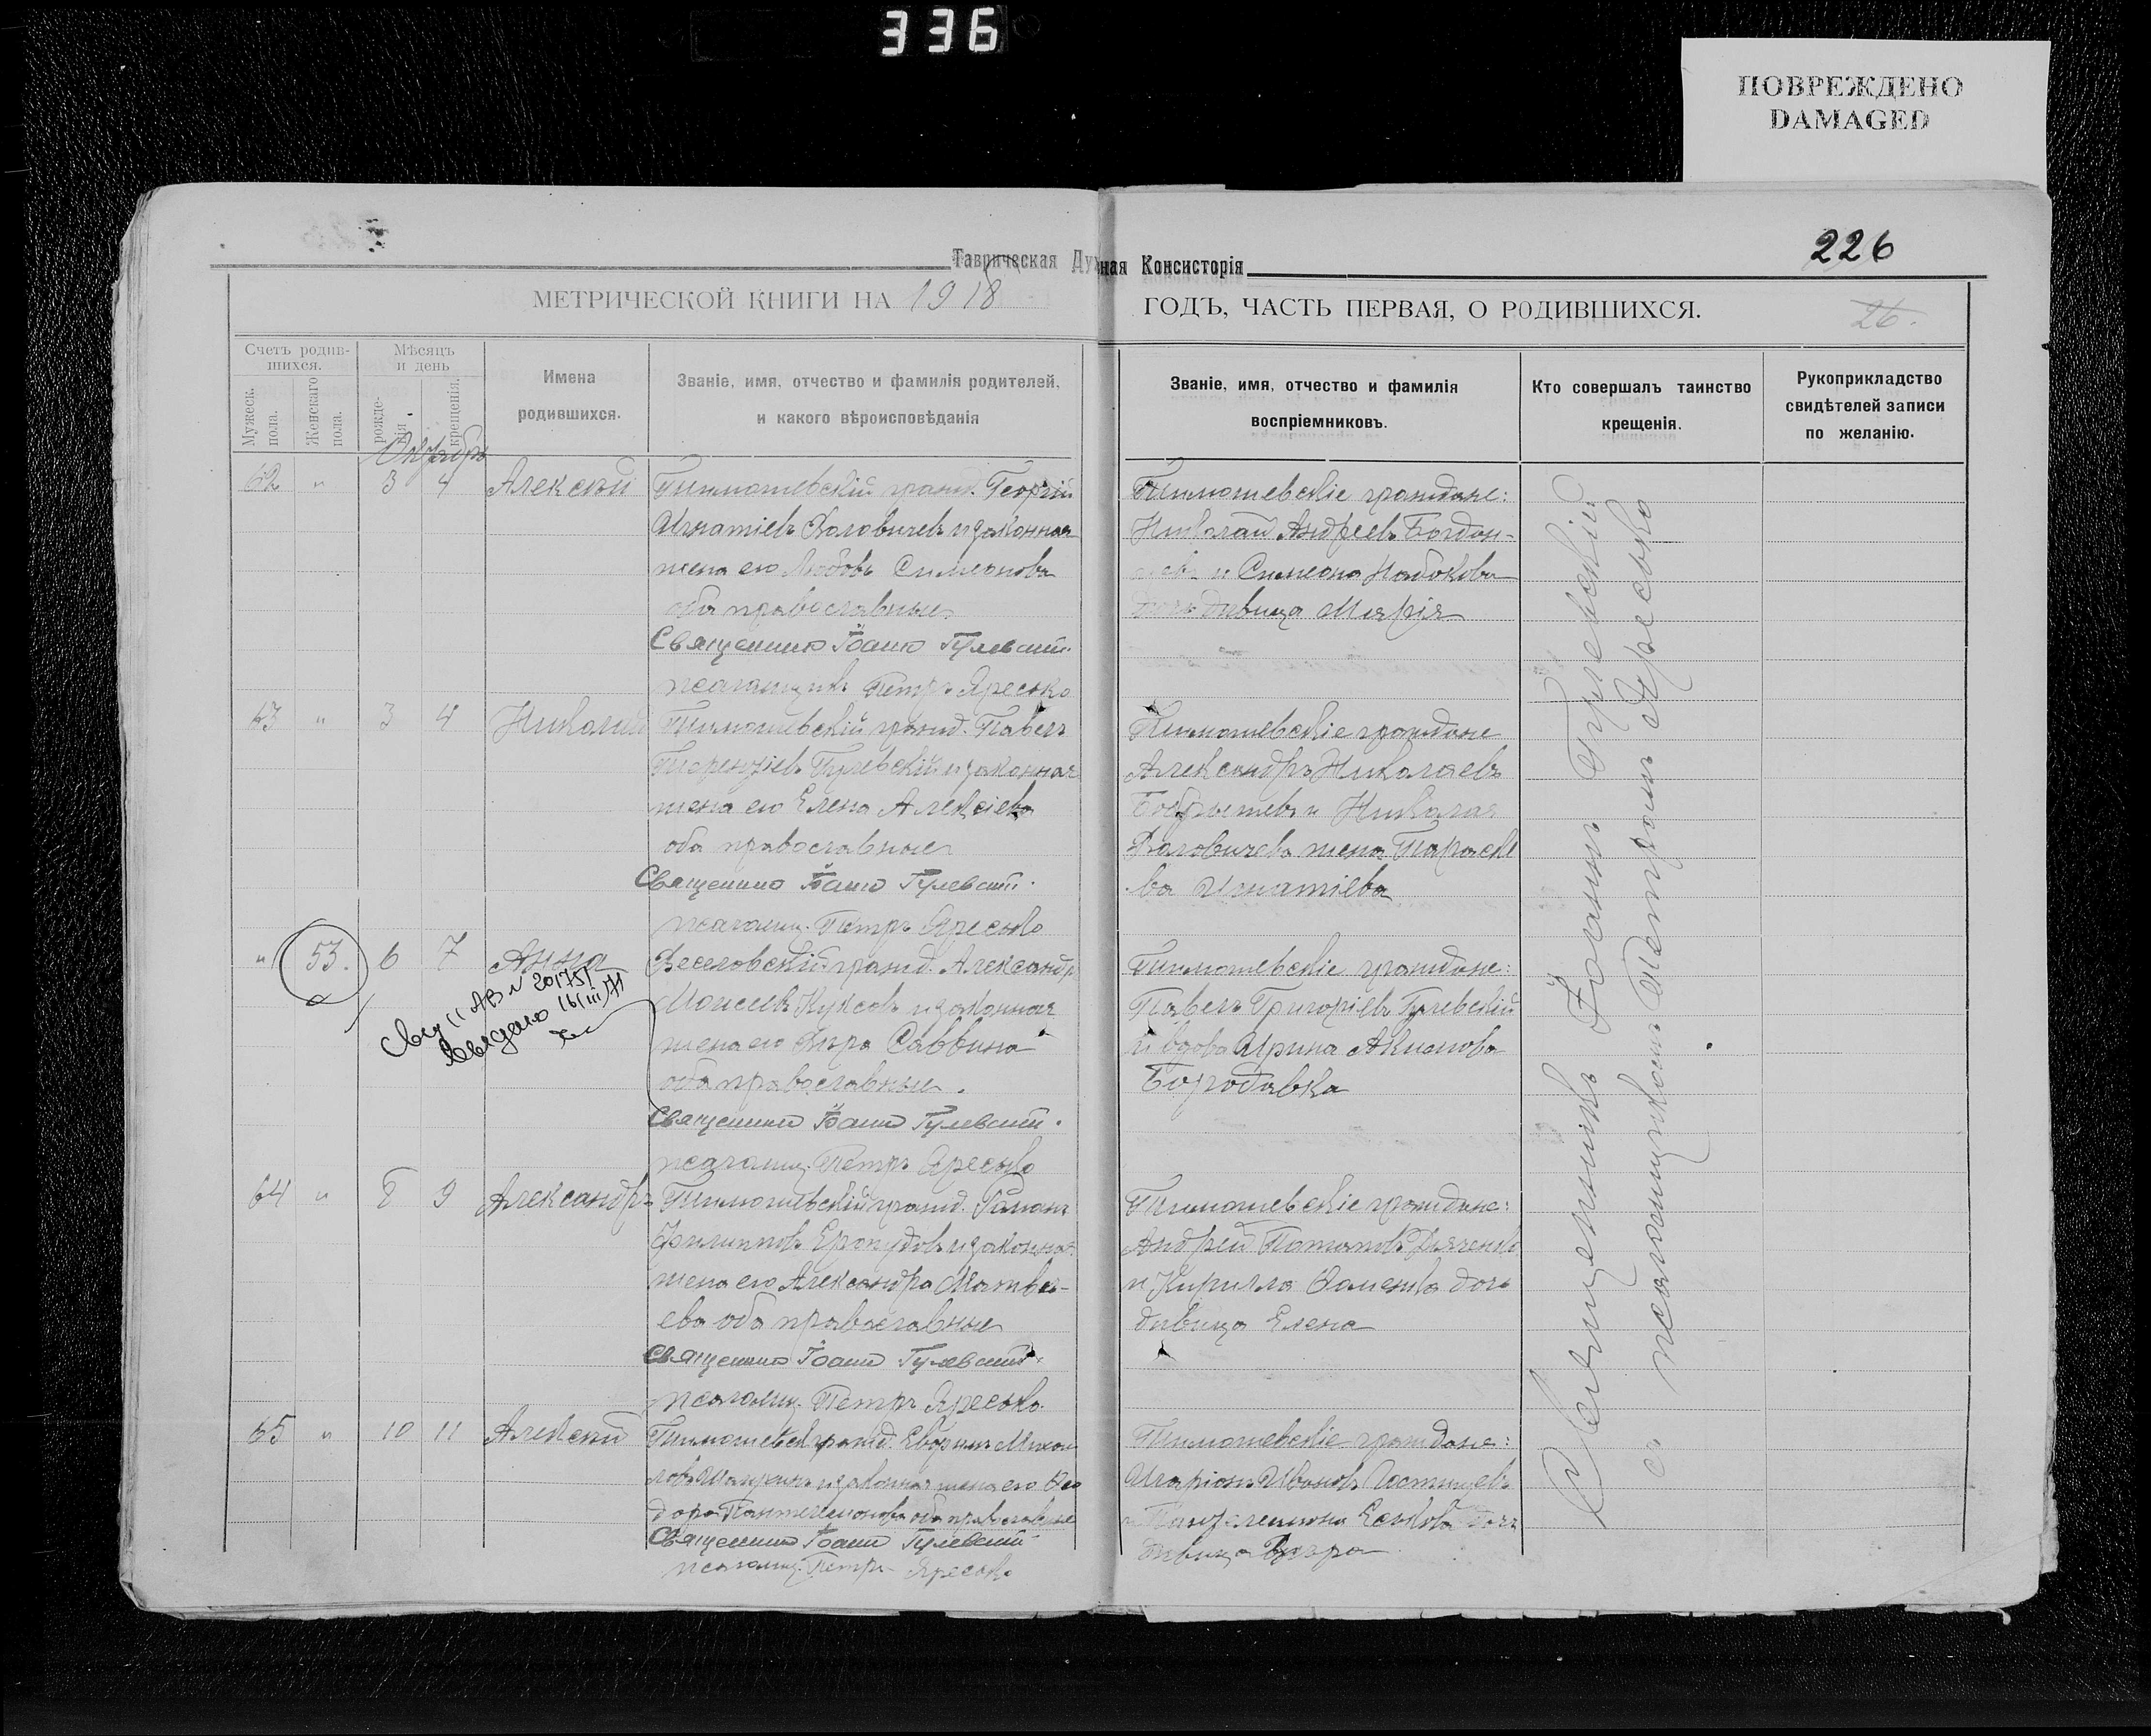 336
ПОВРЕЖДЕНО
DAMAGED
226
Таврическая Духовная Консисторія
МЕТРИЧЕСКОЙ КНИГИ НА 1918 ГОДЪ, ЧАСТЬ ПЕРВАЯ, О РОДИВШИХСЯ.
26.
Счетъ родив-
шихся.
Мужеск. пола.
Женскаго пола.
Мѣсяцъ
и день
рожде-
нія.
крещенія.
Имена
родившихся.
Званіе, имя, отчество и фамилія родителей,
и какого вѣроисповѣданія
Званіе, имя, отчество и фамилія
воспріемниковъ.
Кто совершалъ таинство
крещенія.
Рукоприкладство
свидѣтелей записи
по желанію.
Октябрь
62 " 3 4 Алексѣй
Тимошевскій гражд. Георгій
Игнатіевъ Воловичевъ и законная
жена его Любовь Симеонова
оба православные
Священникъ Іоаннъ Гулевскій.
псаломщикъ Петръ Яресько
Тимошевскіе граждане:
Николай Андреевъ Богдан-
и Симеона Набокова
дочь дѣвица Марія
63 " 3 4 Николай
Тимошевскій гражд. Павелъ
Гулевскій и законная
жена его Елена Алексіева
оба православные
Священникъ Іоаннъ Гулевскій.
псаломщ. Петръ Яресько
Тимошевскіе граждане
Александръ Николаевъ
и Николая
Воловичева жена Параске-
ва Игнатіева
" 53. 6 7 Анна
АВ № 201751
выдано 16/III/71
Веселовскій гражд. Александръ
Моисеевъ Куксовъ и законная
жена его Вѣра Саввина
оба православные.
Священникъ Іоаннъ Гулевскій.
псаломщ. Петръ Яресько
Тимошевскіе граждане:
Павелъ Григоріевъ Гулевскій
и вдова Ирина Акимова
Бородавка
64 " 8 9 Александръ
Тимошевскій гражд. Романъ
Филипповъ и законная
жена его Александра Матве-
ева оба православные
Священникъ Іоаннъ Гулевскій.
псаломщ. Петръ Яресько.
Тимошевскіе граждане:
Андрей Потаповъ Дяченко
и Кирилла дочь
дѣвица Елена
65 " 10 11 Алексѣй
Тимошевск. гражд.
и законная жена его Ѳео
дора Пантелеимонова оба православные
Священникъ Іоаннъ Гулевскій
псаломщ. Петръ Яресько
Тимошевскіе граждане:
Иларіонъ Ивановъ
и Пантелеимона Еськова дочь
дѣвица Вѣра
Священникъ Іоаннъ Гулевскій
съ псаломщикомъ Петромъ Яресько